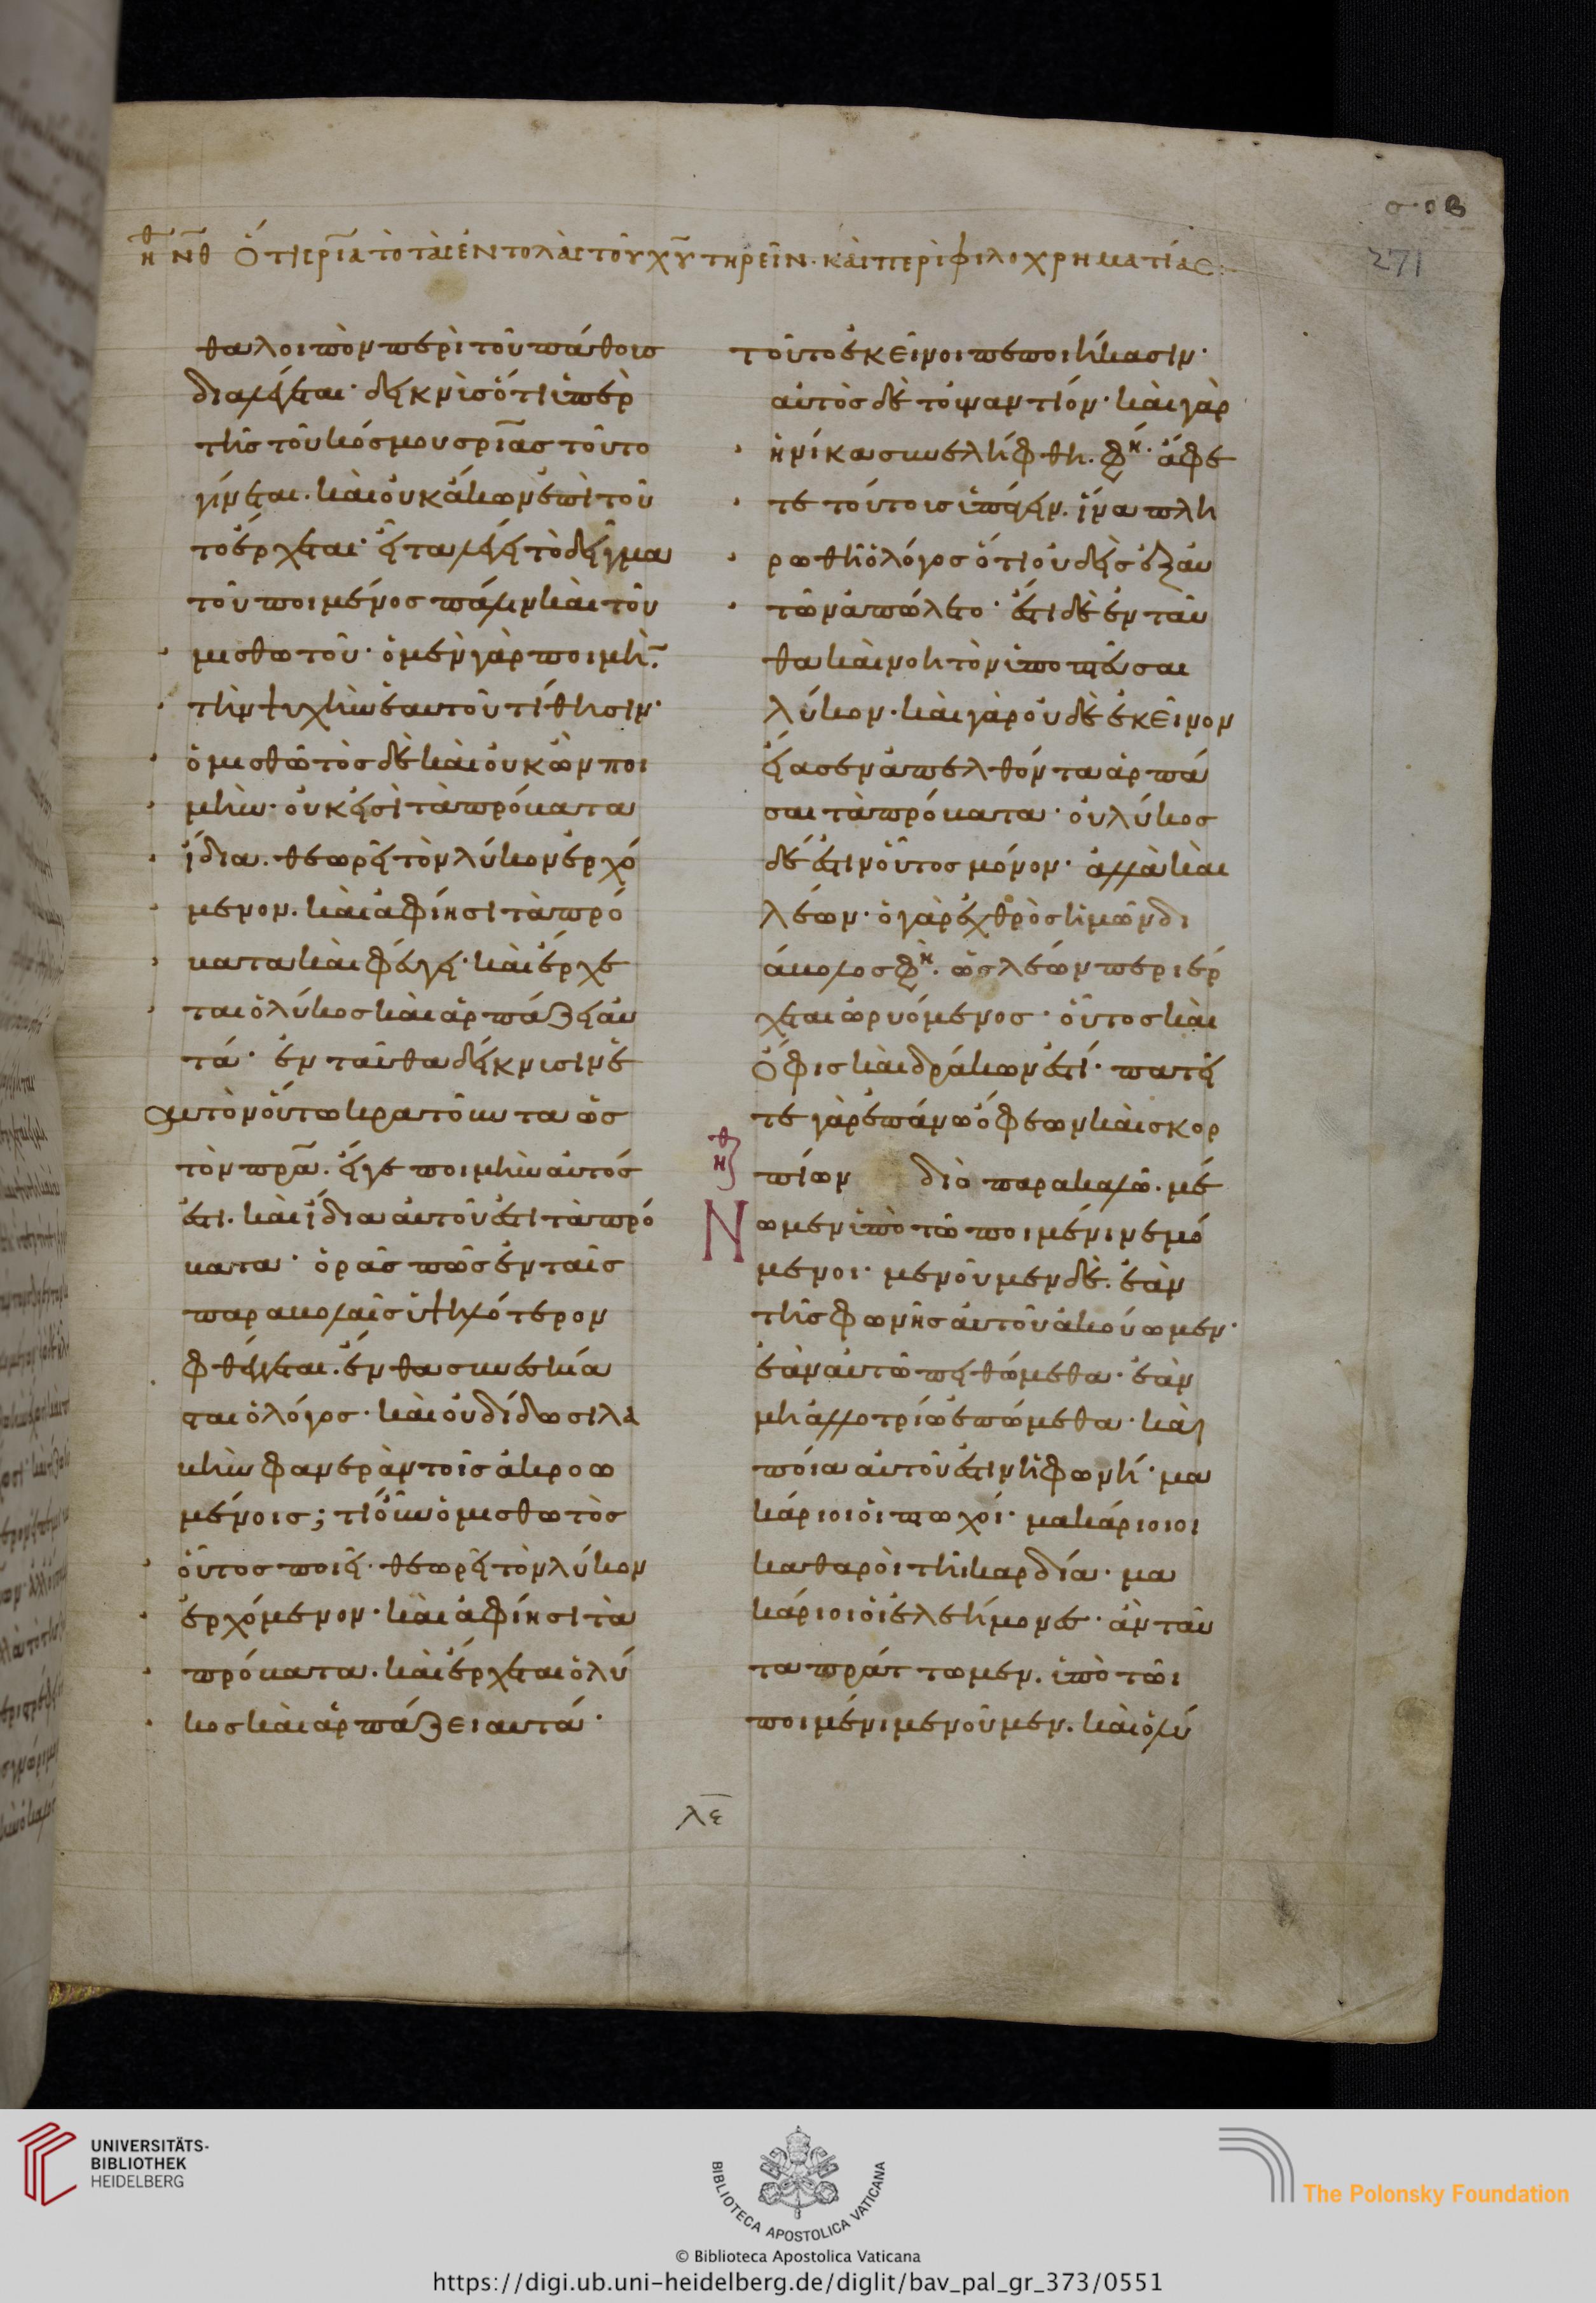 σοβ
271
ἠθ νθ Ὅτι σρία τὸ τὰς ἐντολὰς τοῦ χυ τηρεῖν. καὶ περὶ φιλοχρηματίας:
θα λοιπὸν περὶ τοῦ πάθους
διαλέγεται· δεικνὺς ὅτι ὑπὲρ
τῆς τοῦ κόσμου σρίας τοῦτο
γίνεται. καὶ οὐκ ἄκων ἐπὶ τοῦ
το ἔρχεται· εἶτα λέγει τὸ δεῖγμα
τοῦ ποιμένος πάλιν καὶ τοῦ
μισθωτοῦ· ὁ μὲν γὰρ ποιμὴν
τὴν ψυχὴν ἑαυτοῦ τίθησιν·
ὁ μισθωτὸς δὲ καὶ οὐκ ὢν ποι
μὴν· οὗ οὐκ εἰσὶ τὰ πρόβατα
ἴδια. θεωρεῖ τὸν λύκον ἐρχό
μενον. καὶ ἀφίησι τὰ πρό
βατα καὶ φεύγει· καὶ ἔρχε
ται ὁ λύκος καὶ ἁρπάζει αὐ
τά· ἐνταῦθα δείκνυσιν ἑ
αυτὸν οὕτω κρατοῦντα ὡς
τὸν πρα. εἴγε ποιμὴν αὐτός
ἐστι. καὶ ἴδια αὐτοῦ ἐστι τὰ πρό
βατα· ὁρᾶς πῶς ἐν ταῖς
παραβολαῖς ὑψηλότερον
φθέγγεται. ἔνθα συνεσκία
σται ὁ λόγος· καὶ οὐ δίδωσι λα
βὴν φανερὰν τοῖς ἀκροω
μένοις; τί οὖν ὁ μισθωτὸς
οὗτος ποιεῖ· θεωρεῖ τὸν λύκον
ἐρχόμενον· καὶ ἀφίησι τὰ
πρόβατα. καὶ ἔρχεται ὁ λύ
κος καὶ ἁρπάζει αυτά·
τοῦτο ἐκεῖνοι πεποιήκασιν·
αὐτὸς δὲ τοὐναντίον· καὶ γὰρ
ἡνίκα συνελήφθη. φη· ἄφε
τε τούτους ὑπάγειν. ἵνα πλη
ρωθῆ ὁ λόγος ὅτι οὐδεὶς ἐξ αυ
τῶν ἀπώλετο· ἔστι δὲ ἐνταῦ
θα καὶ νοητὸν ὑποπτεῦσαι
λύκον· καὶ γὰρ οὐδὲ ἐκεῖνον
εἴασεν ἀπελθόντα ἁρπά
σαι τὰ πρόβατα· οὐ λύκος
δέ ἐστιν οὗτος μόνον· ἀλλὰ καὶ
λέων· ὁ γὰρ ἐχθρὸς ἡμῶν δι
άβολος φη. ὡς λέων περιέρ
χεται ὠρυόμενος· οὗτος καὶ
ὄφις καὶ δράκων ἐστί· πατεῖ
τε γὰρ ἐπάνω ὄφεων καὶ σκορ
πίων διὸ παρακαλῶ. μέ
ἠθ
Νωμεν ὑπὸ τῶ ποιμένι νεμό
μενοι· μενοῦμεν δὲ. ἐὰν
τῆς φωνῆς αὐτοῦ ἀκούωμεν·
ἐὰν αὐτῶ πειθώμεθα· ἐὰν
μὴ ἀλλοτρίω ἑπώμεθα· καὶ
ποία αὐτοῦ ἐστιν ἡ φωνή· μα
κάριοι οἱ πτωχοί· μακάριοι οι
καθαροὶ τῆ καρδία· μα
κάριοι οἱ ἐλεήμονες· ἂν ταῦ
τα πράττωμεν. ὑπὸ τῶι
ποιμένι μενοῦμεν. καὶ ὁ λύ
λε
UNIVERSITÄTS-
BIBLIOTHEK
HEIDELBERG
BIBLIOTECA APOSTOLICA VATICANA
The Polonsky Foundation
© Biblioteca Apostolica Vaticana
https://digi.ub.uni-heidelberg.de/diglit/bav_pal_gr_373/0551